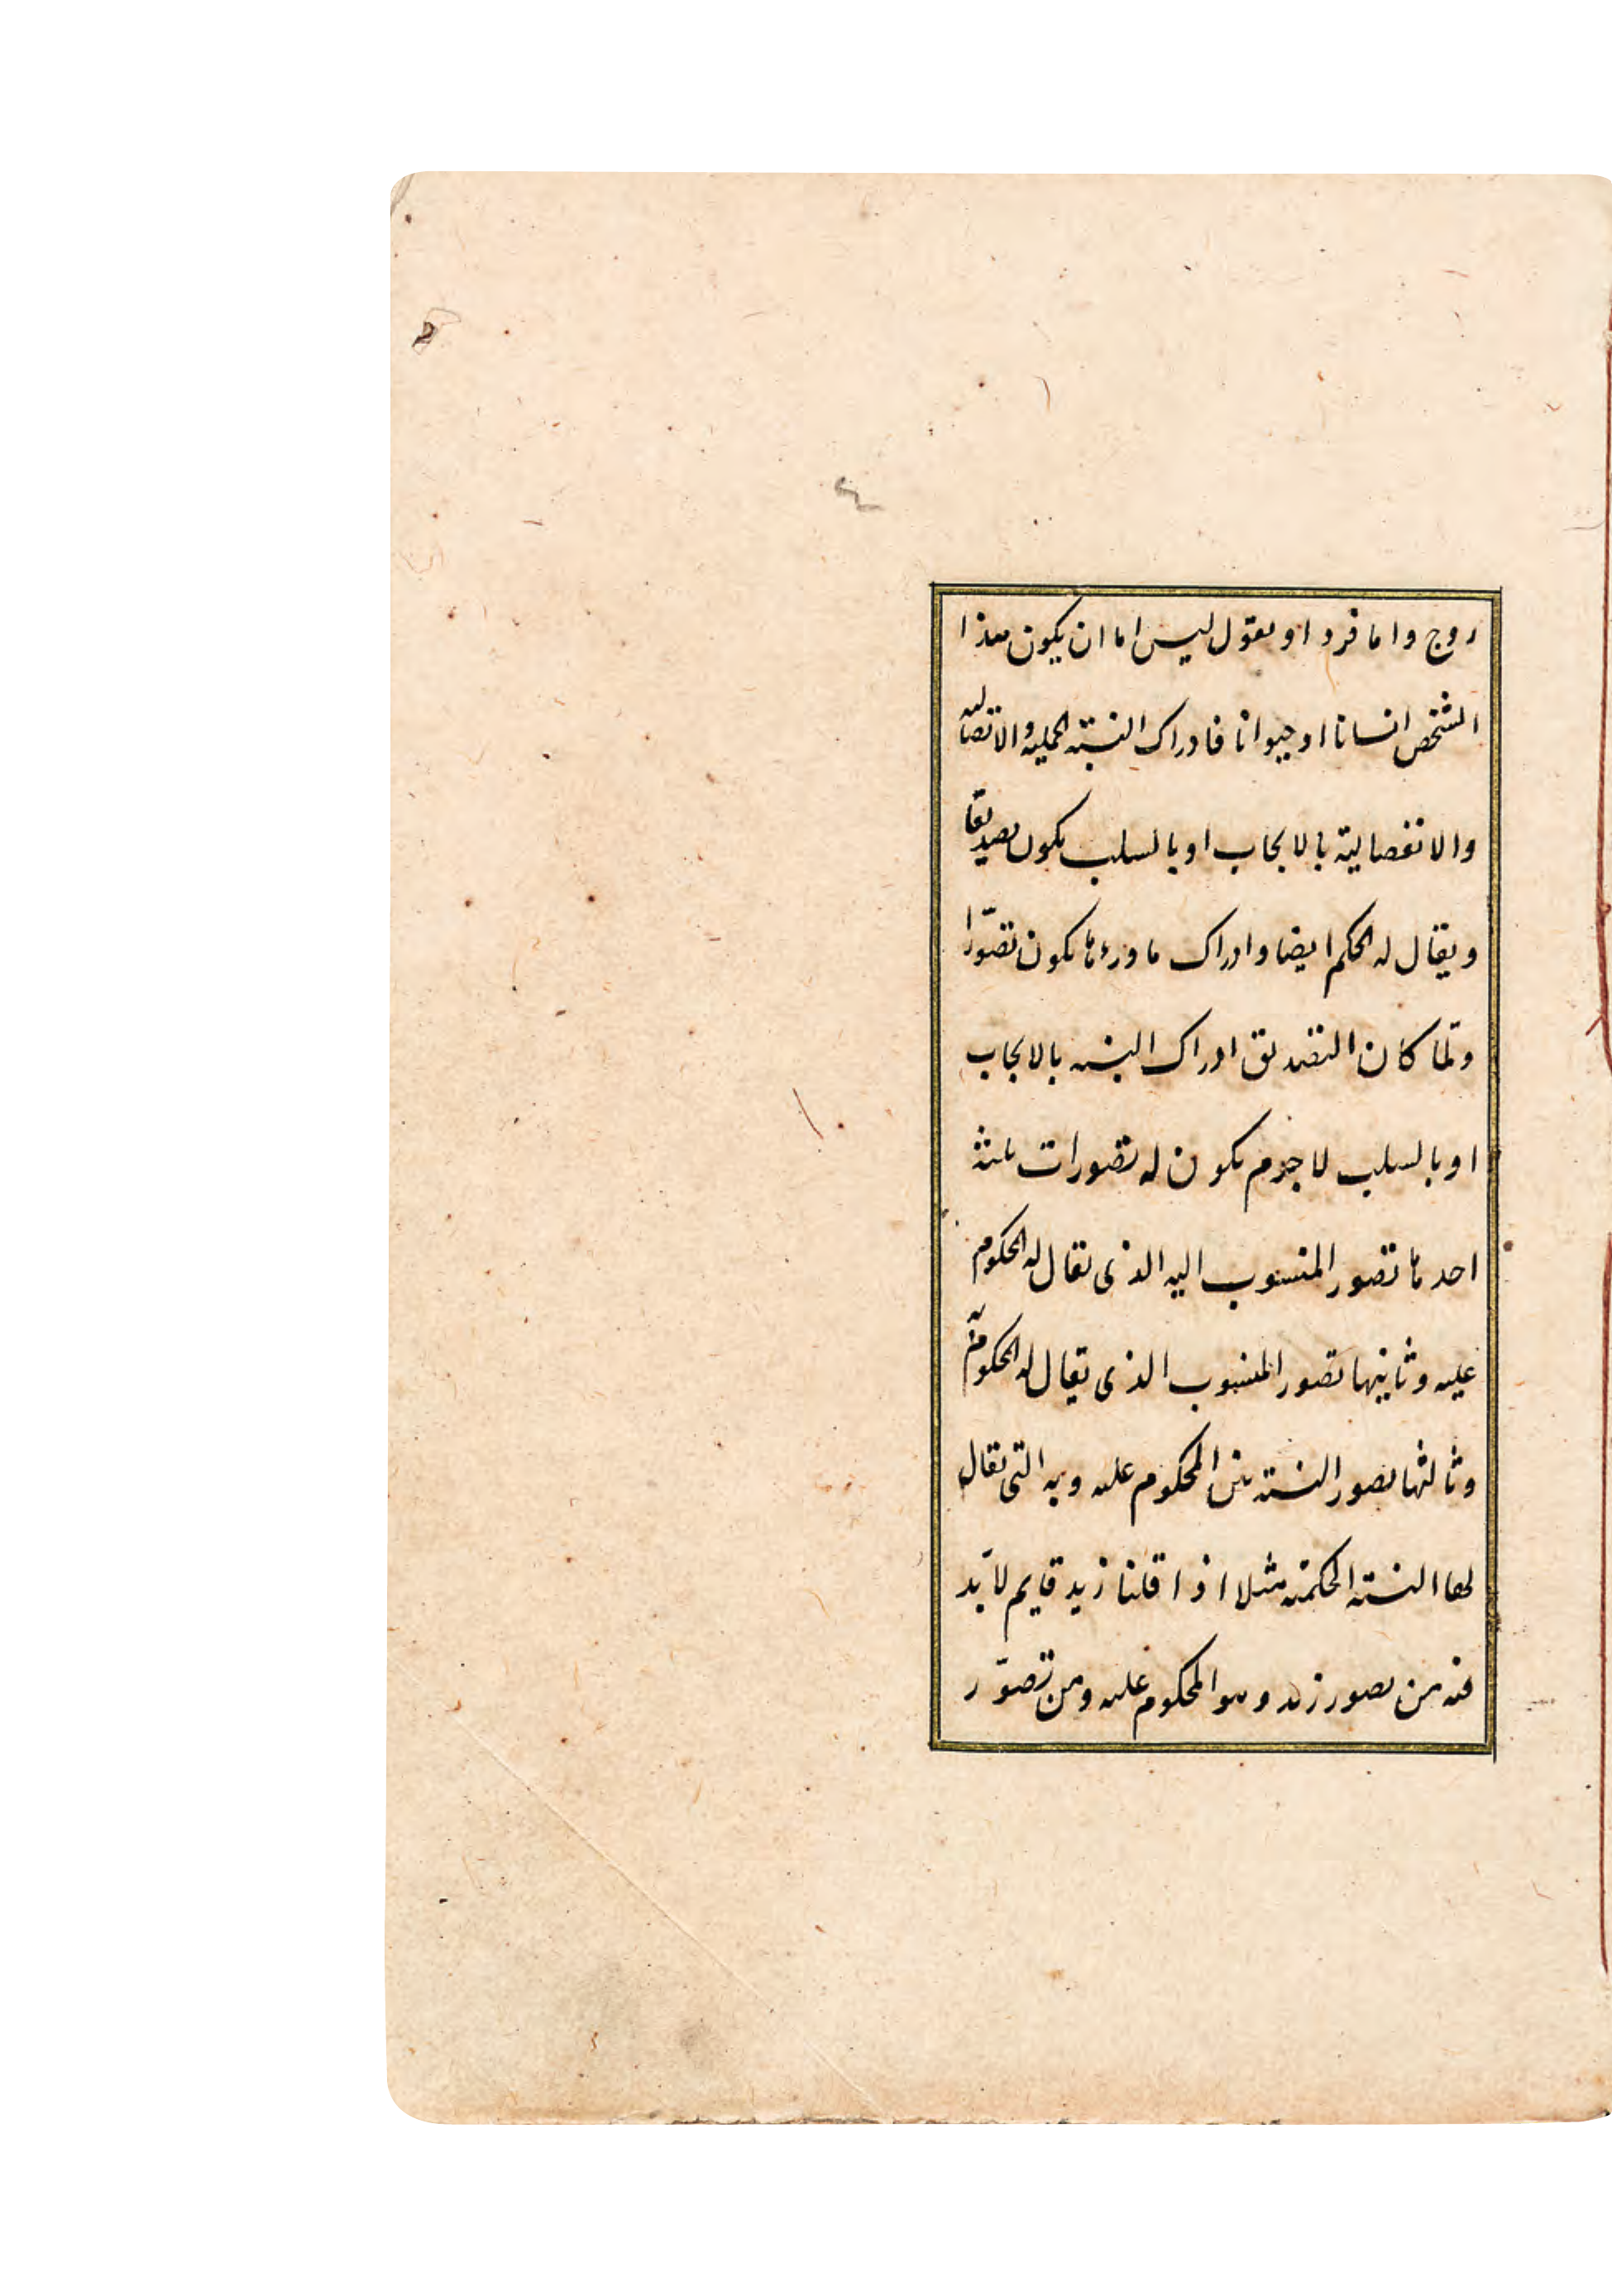 زوج واما فرد او نقول ليس اما ان يكون هذا
الشخص انسانا او حيوانا فادراك النسبة الحملية والاتصالية
والانفصالية بالايجاب او بالسلب يكون تصديقا
ويقال له الحكم ايضا وادراك ما وراءها يكون تصوّرا
ولمّا كان التصديق ادراك النسبة بالايجاب
او بالسلب لا جرم يكون له تصورات ثلثة
احدها تصور المنسوب اليه الذى يقال له المحكوم
عليه وثانيها تصور المنسوب الذى يقال له المحكوم به
وثالثها تصور النسبة بين المحكوم عليه وبه التى يقال
لها النسبة الحكمية مثلا اذا قلنا زيد قايم لا بّد
فيه من تصور زيد وهو المحكوم عليه ومن تصوّر